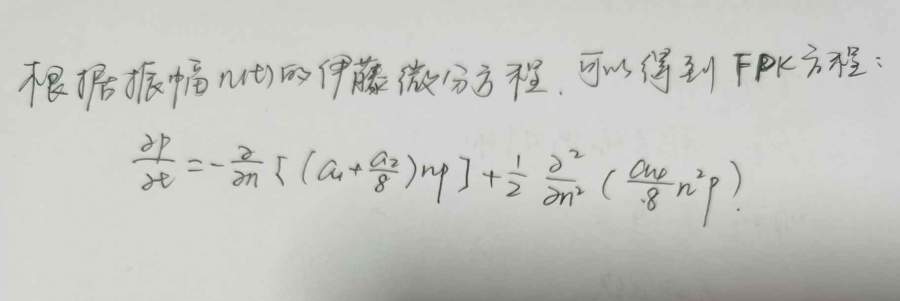 根据振幅n(t)的伊藤微分方程,可以得到FPK方程:
∂p/∂t = -∂/∂n [(a₁+a₂/8)np] + 1/2 ∂²/∂n² (a₄/8 n²p).